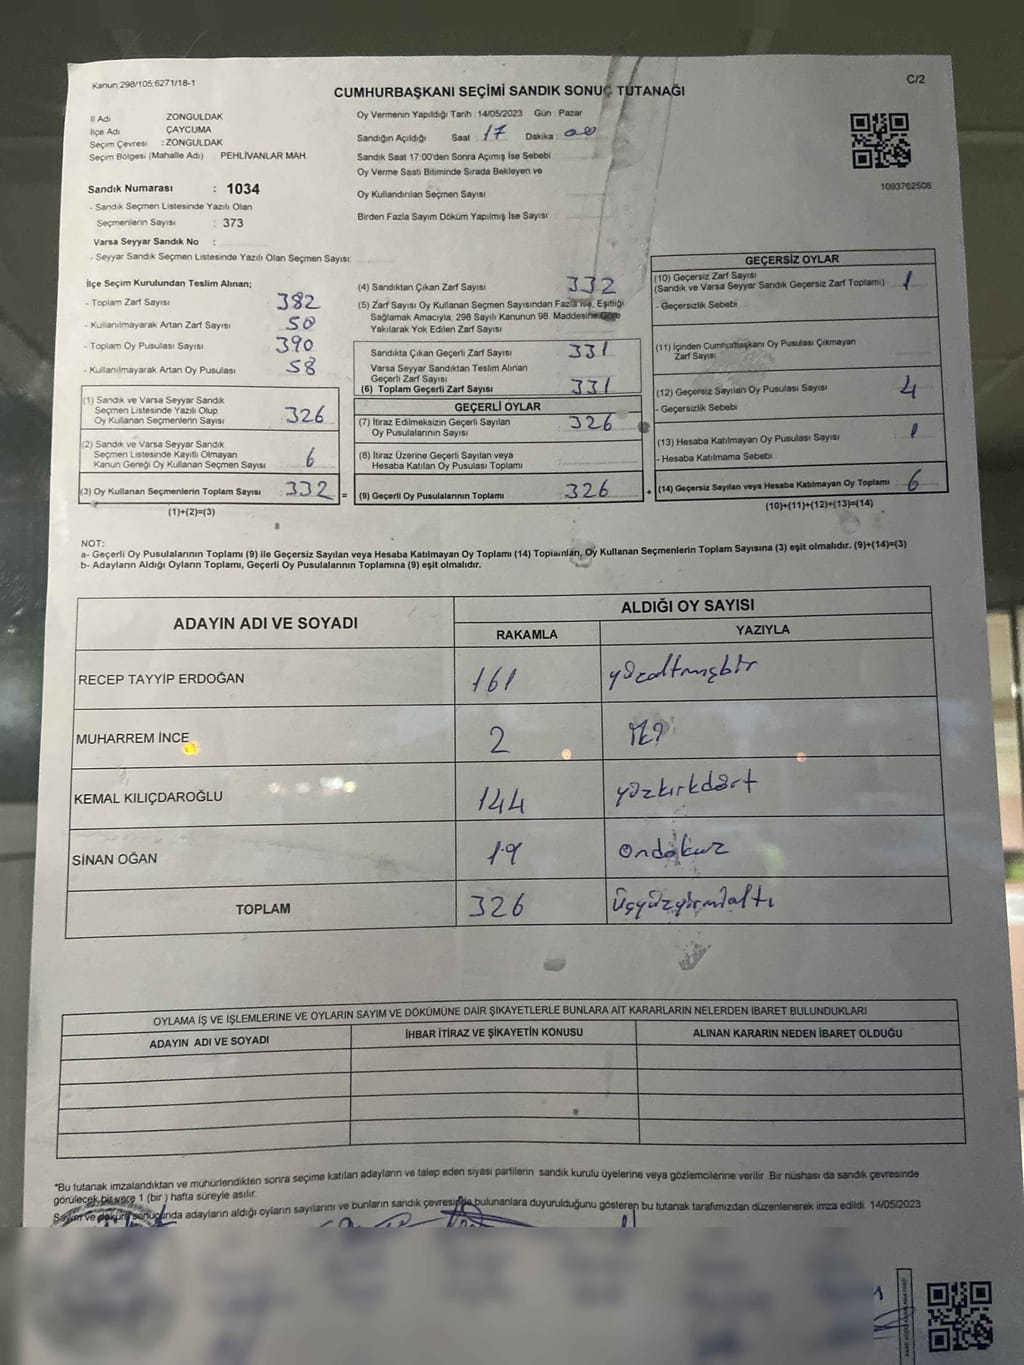 Kanun;298/105;6271/18-1
C/2
CUMHURBAŞKANI SEÇİMİ SANDIK SONUÇ TUTANAĞI
İl Adı ZONGULDAK
İlçe Adı ÇAYCUMA
Seçim Çevresi : ZONGULDAK
Seçim Bölgesi (Mahalle Adı) PEHLİVANLAR MAH.
Sandık Numarası : 1034
- Sandık Seçmen Listesinde Yazılı Olan
Seçmenlerin Sayısı : 373
Varsa Seyyar Sandık No :
- Seyyar Sandık Seçmen Listesinde Yazılı Olan Seçmen Sayısı:
Oy Vermenin Yapıldığı Tarih : 14/05/2023 Gün : Pazar
Sandığın Açıldığı Saat 17 Dakika : 00
Sandık Saat 17:00'den Sonra Açımış İse Sebebi
Oy Verme Saati Bitiminde Sırada Bekleyen ve
Oy Kullandırılan Seçmen Sayısı
Birden Fazla Sayım Döküm Yapılmış İse Sayısı
1093762508
İlçe Seçim Kurulundan Teslim Alınan;
- Toplam Zarf Sayısı 382
- Kullanılmayarak Artan Zarf Sayısı 50
- Toplam Oy Pusulası Sayısı 390
- Kullanılmayarak Artan Oy Pusulası 58
(1) Sandık ve Varsa Seyyar Sandık
Seçmen Listesinde Yazılı Olup
Oy Kullanan Seçmenlerin Sayısı 326
(2) Sandık ve Varsa Seyyar Sandık
Seçmen Listesinde Kayıtlı Olmayan
Kanun Gereği Oy Kullanan Seçmen Sayısı 6
(3) Oy Kullanan Seçmenlerin Toplam Sayısı 332 =
(1)+(2)=(3)
(4) Sandıktan Çıkan Zarf Sayısı 332
(5) Zarf Sayısı Oy Kullanan Seçmen Sayısından Fazla ise, Eşitliği
Sağlamak Amacıyla, 298 Sayılı Kanunun 98. Maddesine Göre
Yakılarak Yok Edilen Zarf Sayısı
Sandıkta Çıkan Geçerli Zarf Sayısı 331
Varsa Seyyar Sandıktan Teslim Alınan
Geçerli Zarf Sayısı
(6) Toplam Geçerli Zarf Sayısı 331
GEÇERLİ OYLAR
(7) İtiraz Edilmeksizin Geçerli Sayılan
Oy Pusulalarının Sayısı 326
(8) İtiraz Üzerine Geçerli Sayılan veya
Hesaba Katılan Oy Pusulası Toplamı
(9) Geçerli Oy Pusulalarının Toplamı 326 +
GEÇERSİZ OYLAR
(10) Geçersiz Zarf Sayısı
(Sandık ve Varsa Seyyar Sandık Geçersiz Zarf Toplamı) 1
- Geçersizlik Sebebi
(11) İçinden Cumhurbaşkanı Oy Pusulası Çıkmayan
Zarf Sayısı
(12) Geçersiz Sayılan Oy Pusulası Sayısı 4
- Geçersizlik Sebebi
(13) Hesaba Katılmayan Oy Pusulası Sayısı 1
- Hesaba Katılmama Sebebi
(14) Geçersiz Sayılan veya Hesaba Katılmayan Oy Toplamı 6
(10)+(11)+(12)+(13)=(14)
NOT:
a- Geçerli Oy Pusulalarının Toplamı (9) ile Geçersiz Sayılan veya Hesaba Katılmayan Oy Toplamı (14) Toplamları, Oy Kullanan Seçmenlerin Toplam Sayısına (3) eşit olmalıdır. (9)+(14)=(3)
b- Adayların Aldığı Oyların Toplamı, Geçerli Oy Pusulalarının Toplamına (9) eşit olmalıdır.
ADAYIN ADI VE SOYADI ALDIĞI OY SAYISI
RAKAMLA YAZIYLA
RECEP TAYYİP ERDOĞAN 161 yüzaltmışbir
MUHARREM İNCE 2 iki
KEMAL KILIÇDAROĞLU 144 yüzkırkdört
SİNAN OĞAN 19 ondokuz
TOPLAM 326 üçyüzyirmialtı
OYLAMA İŞ VE İŞLEMLERİNE VE OYLARIN SAYIM VE DÖKÜMÜNE DAİR ŞİKAYETLERLE BUNLARA AİT KARARLARIN NELERDEN İBARET BULUNDUKLARI
ADAYIN ADI VE SOYADI İHBAR İTİRAZ VE ŞİKAYETİN KONUSU ALINAN KARARIN NEDEN İBARET OLDUĞU
*Bu tutanak imzalandıktan ve mühürlendikten sonra seçime katılan adayların ve talep eden siyasi partilerin sandık kurulu üyelerine veya gözlemcilerine verilir. Bir nüshası da sandık çevresinde
görülecek bir yere 1 (bir ) hafta süreyle asılır.
Sayım ve döküm sonucunda adayların aldığı oyların sayılarını ve bunların sandık çevresinde bulunanlara duyurulduğunu gösteren bu tutanak tarafımızdan düzenlenerek imza edildi. 14/05/2023